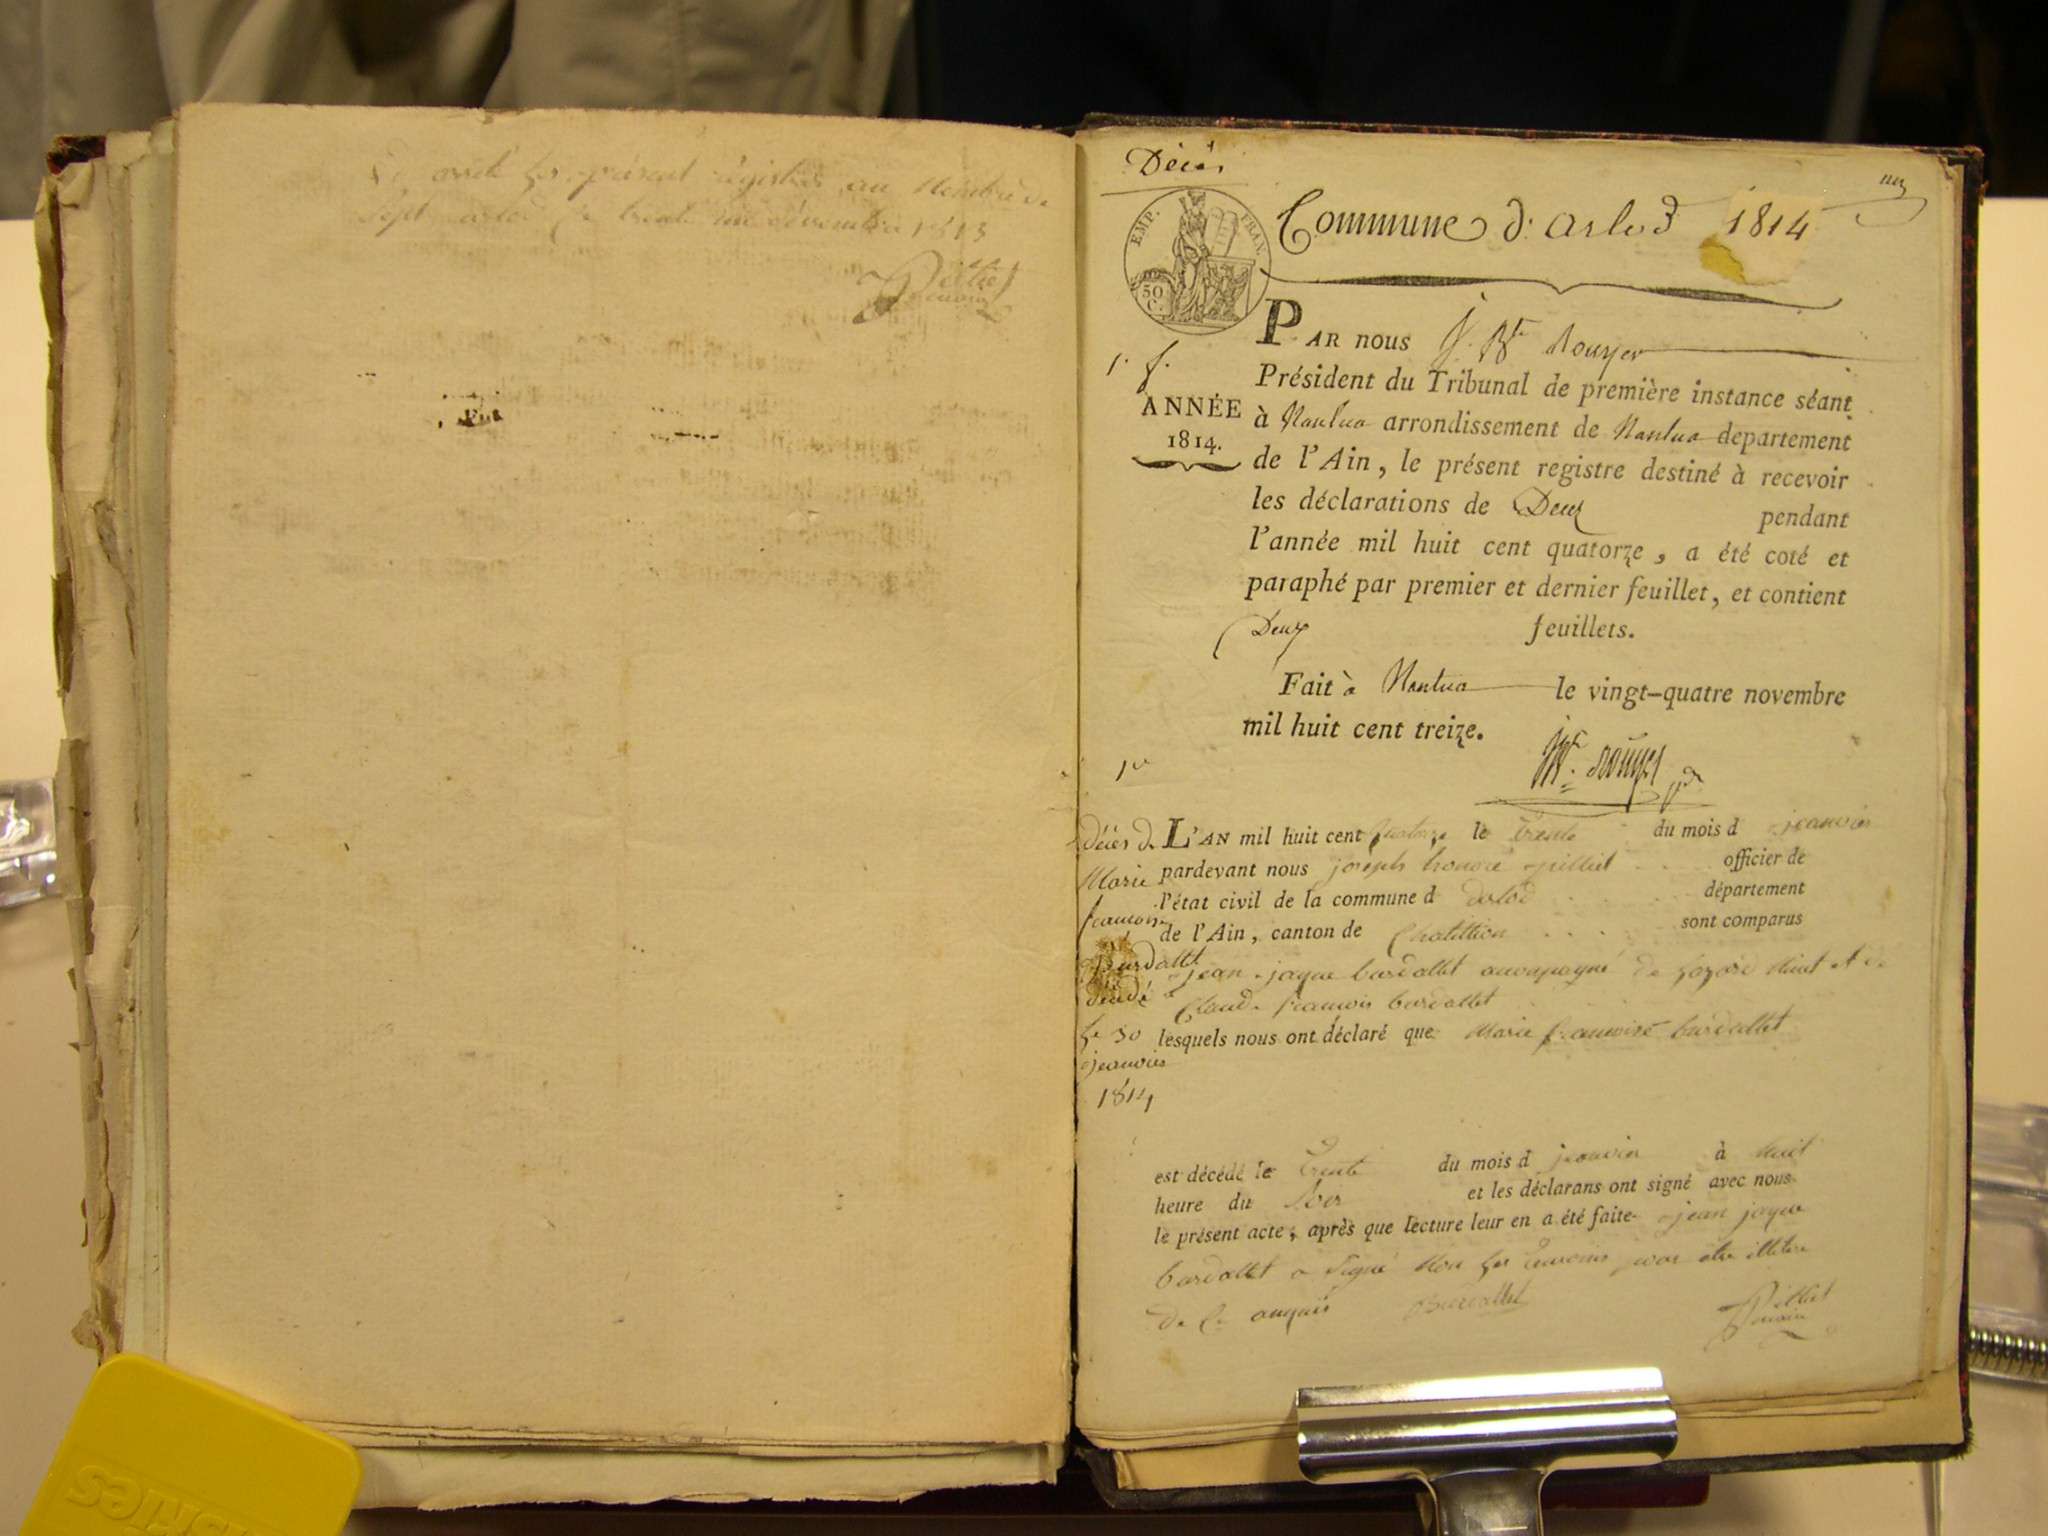 arrêté les présent registres au Nombre de
Sept arlod le trent un décembre 1813
Décès
Commune d'arlod 1814
EMP. FRAN.
50 C.
PAR nous J. Bte Rouyer
1. f.
Président du Tribunal de première instance séant
ANNÉE
1814.
à Nantua arrondissement de Nantua departement
de l'Ain, le présent registre destiné à recevoir
les déclarations de Décès pendant
l'année mil huit cent quatorze, a été coté et
paraphé par premier et dernier feuillet, et contient
Deux feuillets.
Fait à Nantua le vingt-quatre novembre
mil huit cent treize.
Décès de
Marie
francoise
Burdallet
décédé
le 30
jeanvier
1814
L'AN mil huit cent quatorze le trente du mois d jeanvier
pardevant nous joseph honoré pilliet officier de
l'état civil de la commune d arlod département
de l'Ain, canton de Chatillion sont comparus
jean jaque burdallet accompagné de lazare Minet et de
Claude francois burdallet
lesquels nous ont déclaré que Marie francoise burdallet
est décédé le trente du mois d jeanvier à huit
heure du soir et les déclarans ont signé avec nous
le présent acte, après que lecture leur en a été faite jean jaque
burdallet a signé Non les temoins pour etre illitere
de ce enquis Burdallet